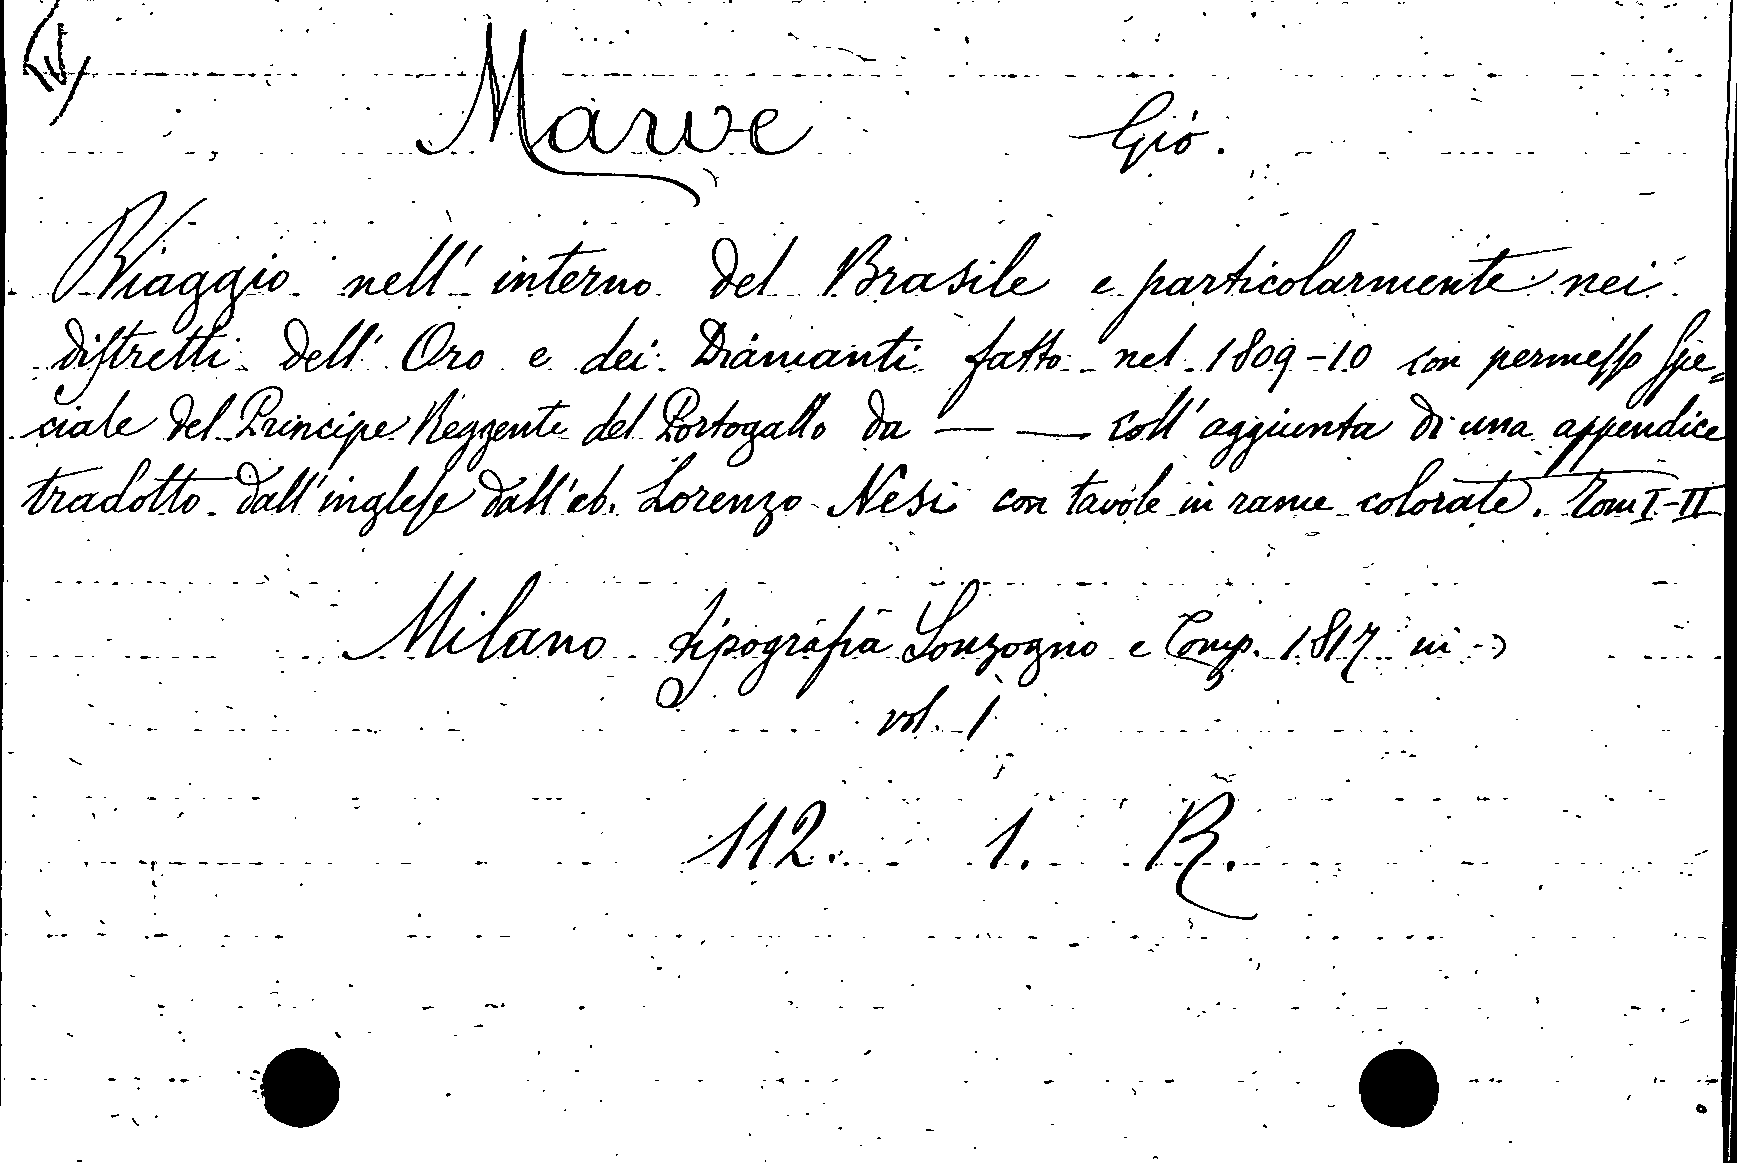 Marve Giò.
Viaggio nell' interno del Brasile e particolarmente nei
distretti dell' Oro e dei Diamanti fatto nel 1809-10 con permesso spe-
ciale del Principe Reggente del Portogallo da — — coll' aggiunta di una appendice
tradotto dall'inglese dall'ab. Lorenzo Nesi con tavole in rame colorate. Tomi I-II
Milano tipografia Sonzogno e Comp. 1817 in
vol. 1
112. 1. R.